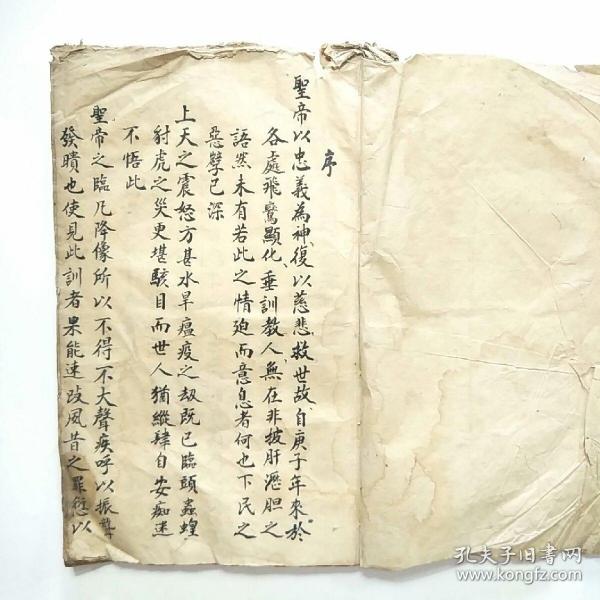 序
聖帝以忠義為神復以慈悲救世故自庚子年來於
各處飛鸞顯化垂訓教人無在非披肝瀝胆之
語然未有若此之情廹而意息者何也下民之
惡孽已深
上天之震怒方甚水旱瘟疫之刼既已臨頭蟲蝗
豺虎之災更堪駭目而世人猶縱肆自安痴迷
不悟此
聖帝之臨凡降像所以不得不大聲疾呼以振聾
發瞶也使見此訓者果能速改夙昔之罪愆以
孔夫子旧書网
www.kongfz.com